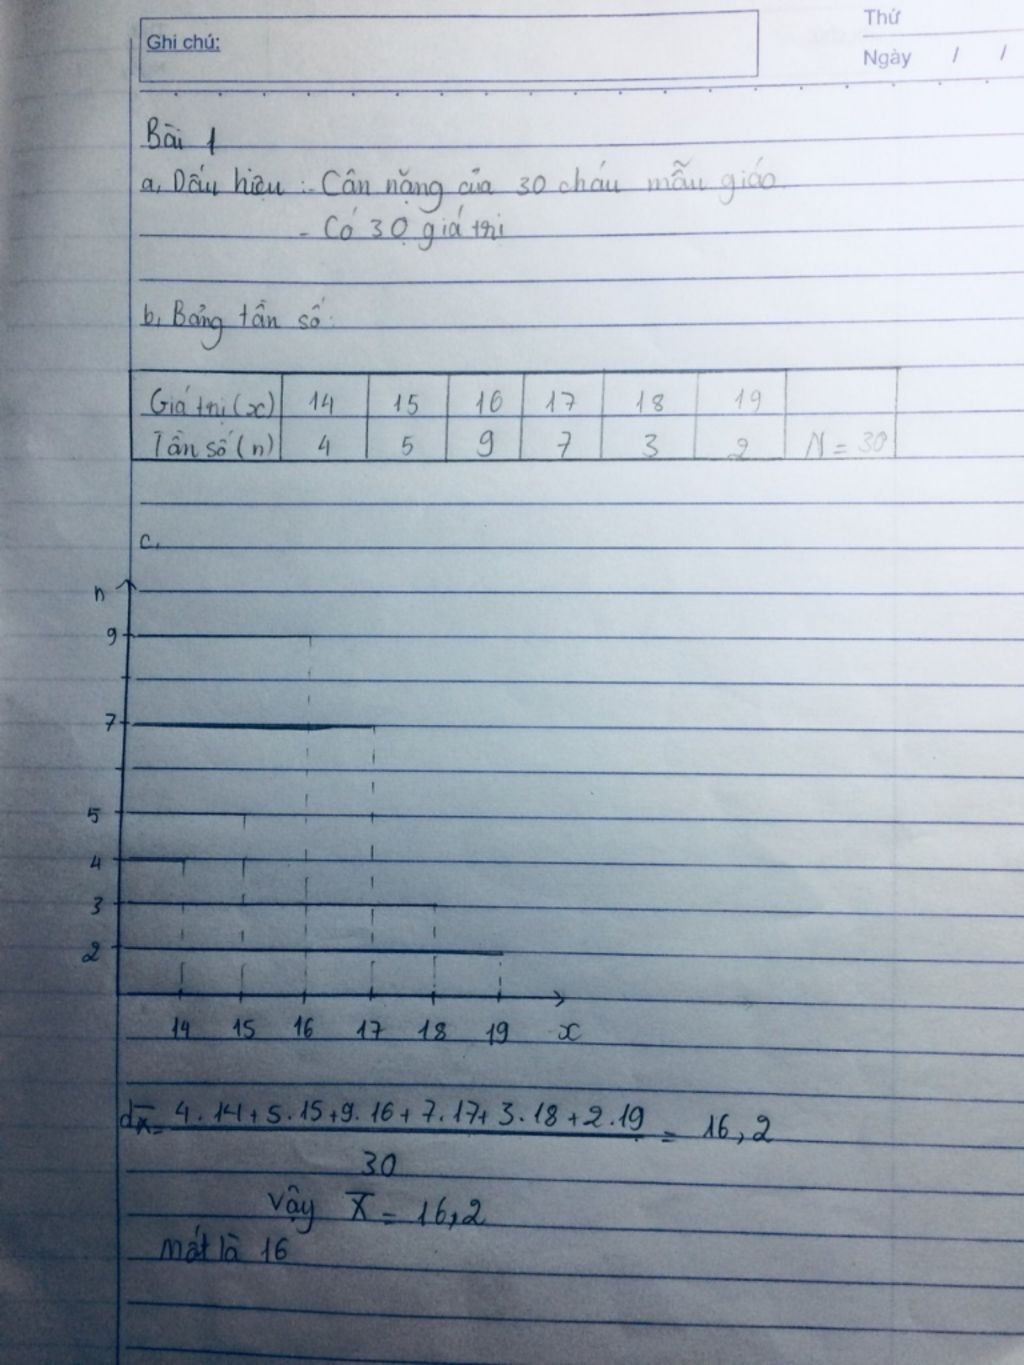 Ghi chú:
Thứ
Ngày / /
Bài 1
a, Dấu hiệu :- Cân nặng của 30 cháu mẫu giáo.
- Có 30 giá trị
b, Bảng tần số:
Giá trị (x) 14 15 16 17 18 19
Tần số (n) 4 5 9 7 3 2 N = 30
c,
n
9
7
5
4
3
2
14 15 16 17 18 19 x
d, X̄ = 4.14+5.15+9.16+7.17+3.18+2.19 = 16,2
30
Vậy X̄ = 16,2
Mốt là 16